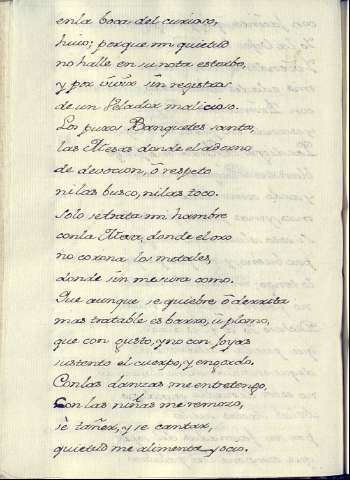 en la boca del curioso,
huio; porque mi quietud
no halle en su nota estorbo,
y por vivir sin registros
de un Velador malicioso.
Los puros Banquetes santos,
las Mesas donde el adorno
de devocion, ò respeto
ni las busco, ni las toco.
Solo se trata mi hambre
con la Mesa, donde el oro
no corona los metales,
donde sin mesura como.
Que aunque se quiebre ò derrita
mas tratable es barro, ù plomo,
que con gusto, y no con joyas
sustento el cuerpo, y engordo.
Con las danzas me entretengo,
Con las niñas me remozo,
sè tañer, y se cantar,
quietud me alimenta y ocio.